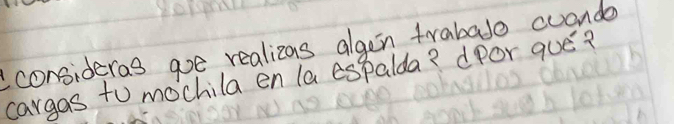 ¿consideras que realizas algún trabajo cuando
cargas tu mochila en la espalda? ¿Por qué?